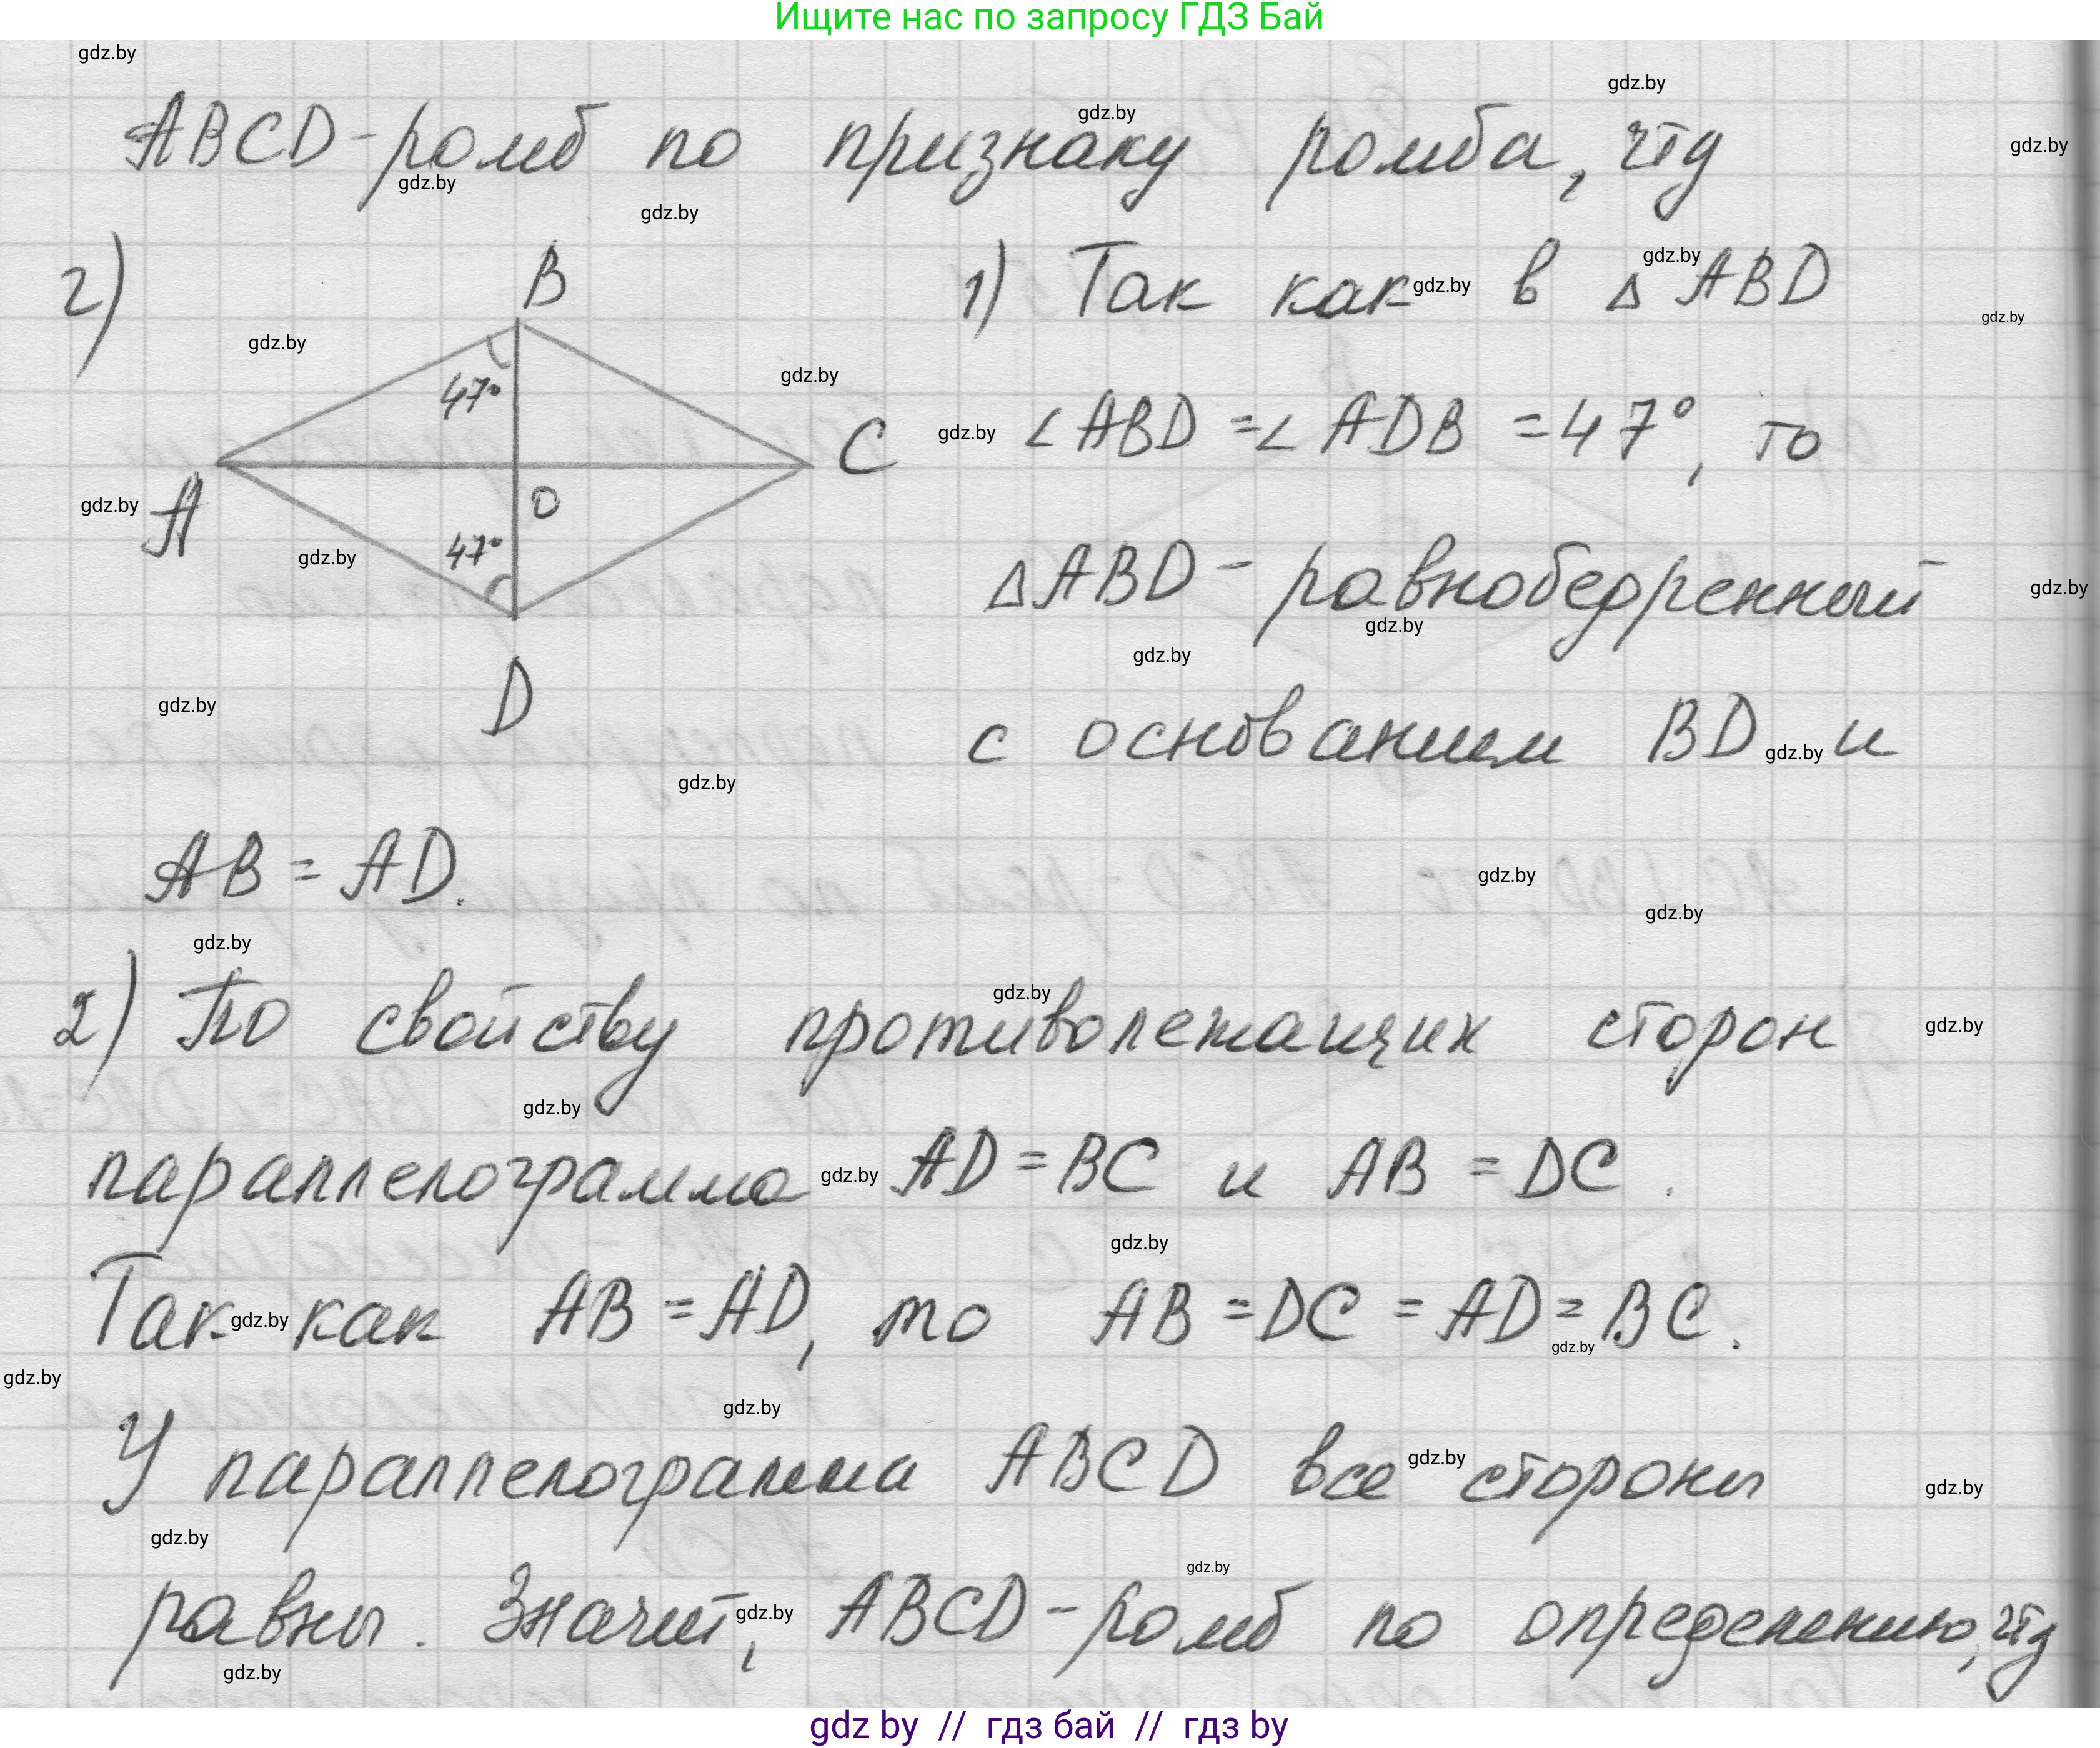 Ищите нас по запросу ГДЗ Бай
ABCD - ромб по признаку ромба, чтд
г)
B
47°
A
C
O
47°
D
1) Так как в △ ABD
∠ABD = ∠ADB = 47°, то
△ABD - равнобедренный
с основанием BD и
AB = AD.
2) По свойству противолежащих сторон
параллелограмма AD = BC и AB = DC.
Так как AB = AD, то AB = DC = AD = BC.
У параллелограмма ABCD все стороны
равны. Значит, ABCD - ромб по определению, чтд
gdz by // гдз бай // гдз by
gdz.by